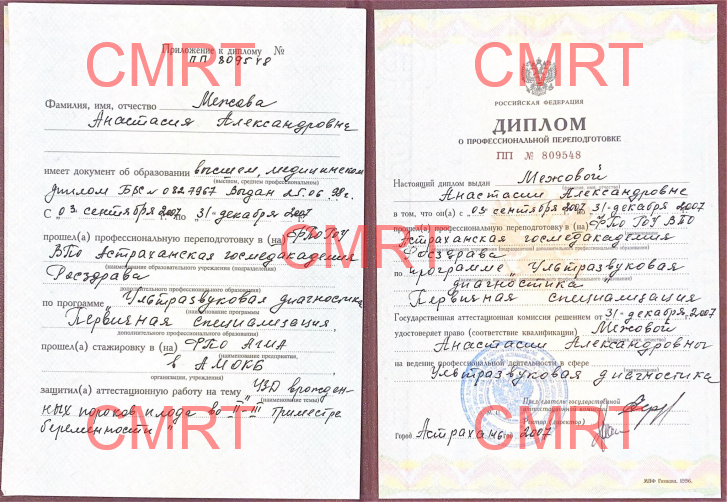 Приложение к диплому №
ПП 809548
Фамилия, имя, отчество Межова
Анастасия Александровна
имеет документ об образовании высшем, медицинском
(высшем, среднем профессиональном)
диплом БВС № 0827967 Выдан 25.06.98г.
С "03 сентября 2007 г. по "31" декабря 2007 г.
прошел(а) профессиональную переподготовку в (на) ФПО ГОУ
ВПО Астраханская госмедакадемия
(наименование образовательного учреждения (подразделения)
Росздрава
дополнительного профессионального образования)
по программе „Ультразвуковая диагностика
(наименование программы
Первичная специализация
дополнительного профессионального образования)
прошел(а) стажировку в (на) ФПО АГМА
(наименование предприятия,
в АМОКБ
организации, учреждения)
защитил(а) аттестационную работу на тему „УЗД врожден-
(наименование темы)
ных пороков плода во II-III триместре
беременности"
РОССИЙСКАЯ ФЕДЕРАЦИЯ
ДИПЛОМ
О ПРОФЕССИОНАЛЬНОЙ ПЕРЕПОДГОТОВКЕ
ПП № 809548
Настоящий диплом выдан Межовой
Анастасии Александровне
в том, что он(а) с "03 сентября 2007 по "31" декабря 2007
прошел(а) профессиональную переподготовку в (на) ФПО ГОУ ВПО
Астраханская госмедакадемия
Росздрава
по программе „Ультразвуковая
диагностика"
Первичная специализация
Государственная аттестационная комиссия решением от "31" декабря 2007
удостоверяет право (соответствие квалификации) Межовой
Анастасии Александровны
на ведение профессиональной деятельности в сфере
Ультразвуковая диагностика
Председатель государственной
аттестационной комиссии
Ректор (директор)
Город Астрахань 2007
CMRT
CMRT
CMRT
CMRT
CMRT